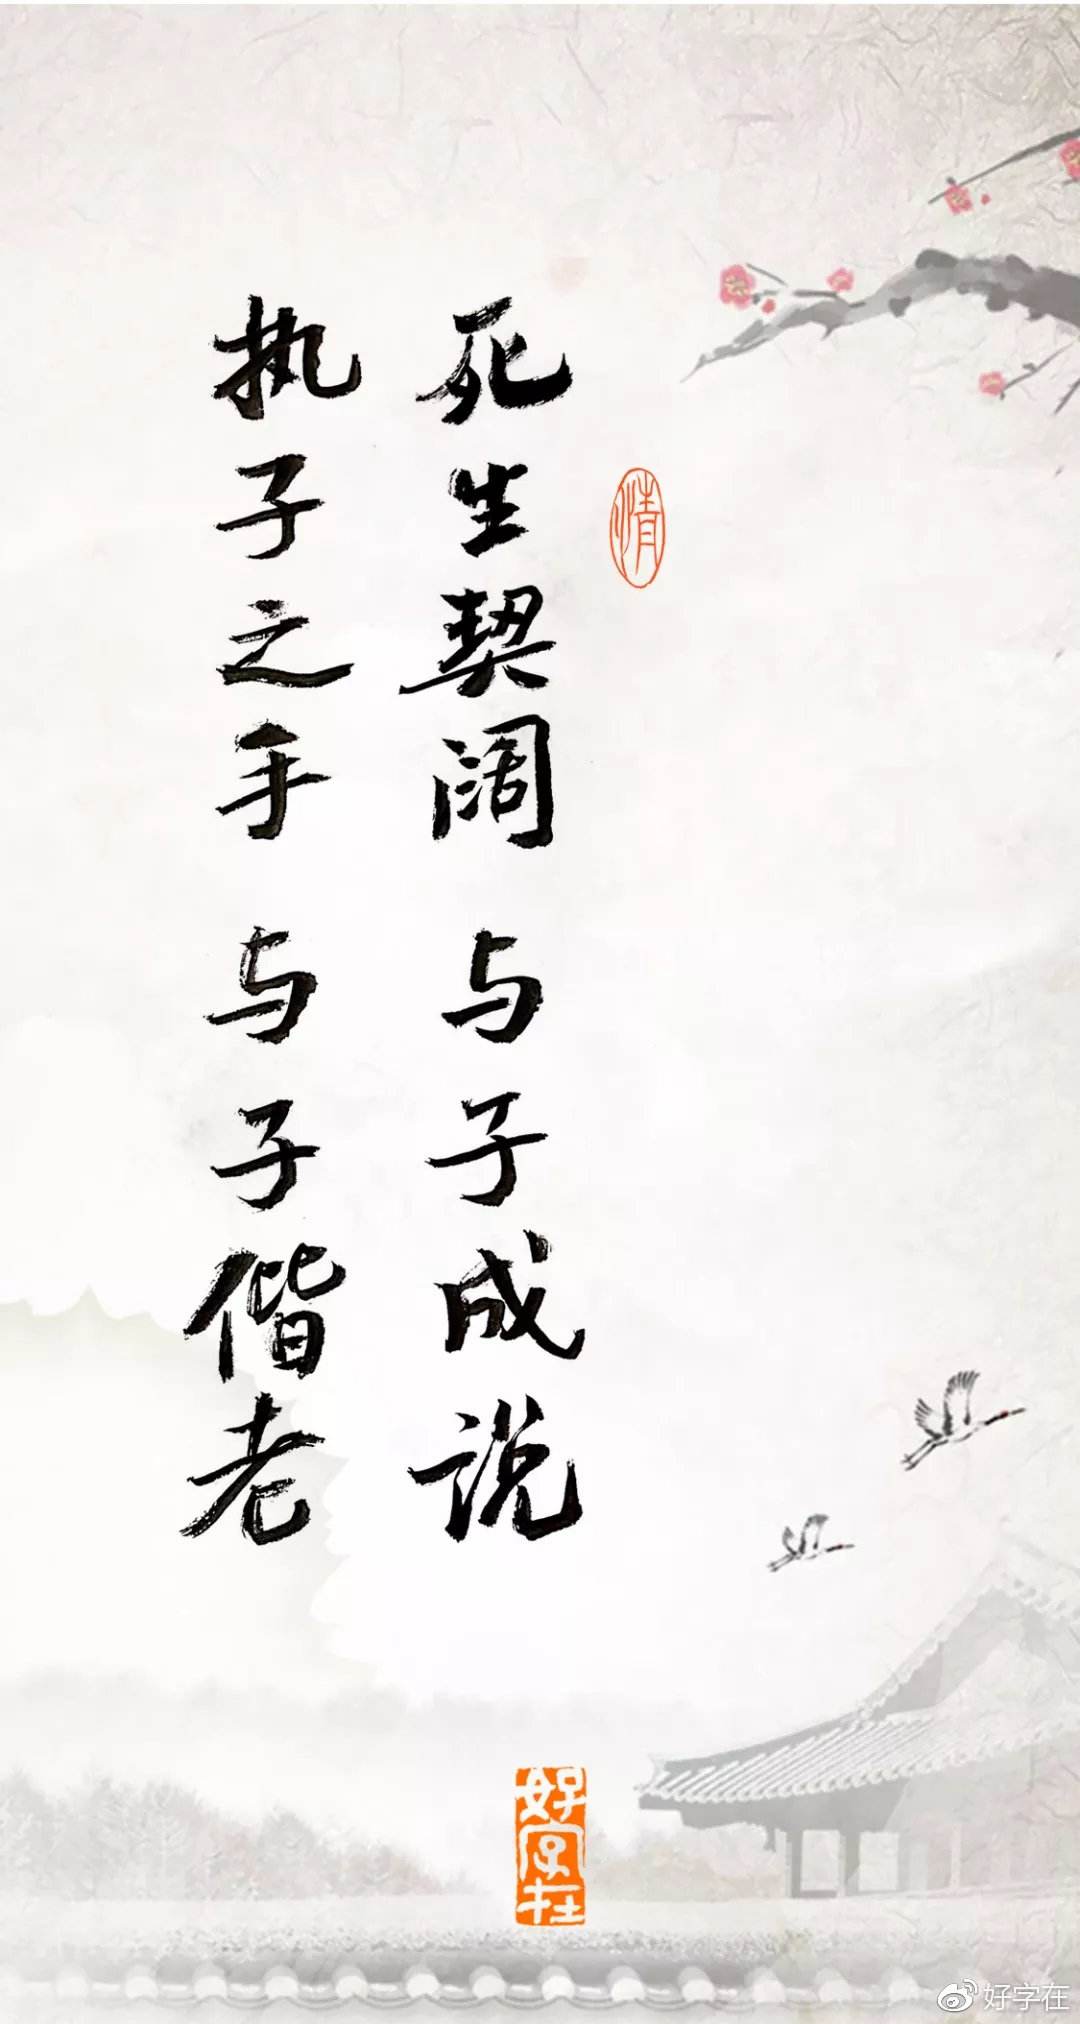 死生契阔 与子成说
执子之手 与子偕老
情
好字在
好字在